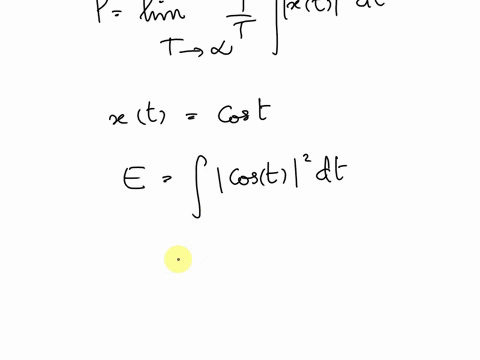 P = lim T→∝ 1/T ∫|x(t)|² dt
x(t) = Cos t
E = ∫ |Cos(t)|² dt